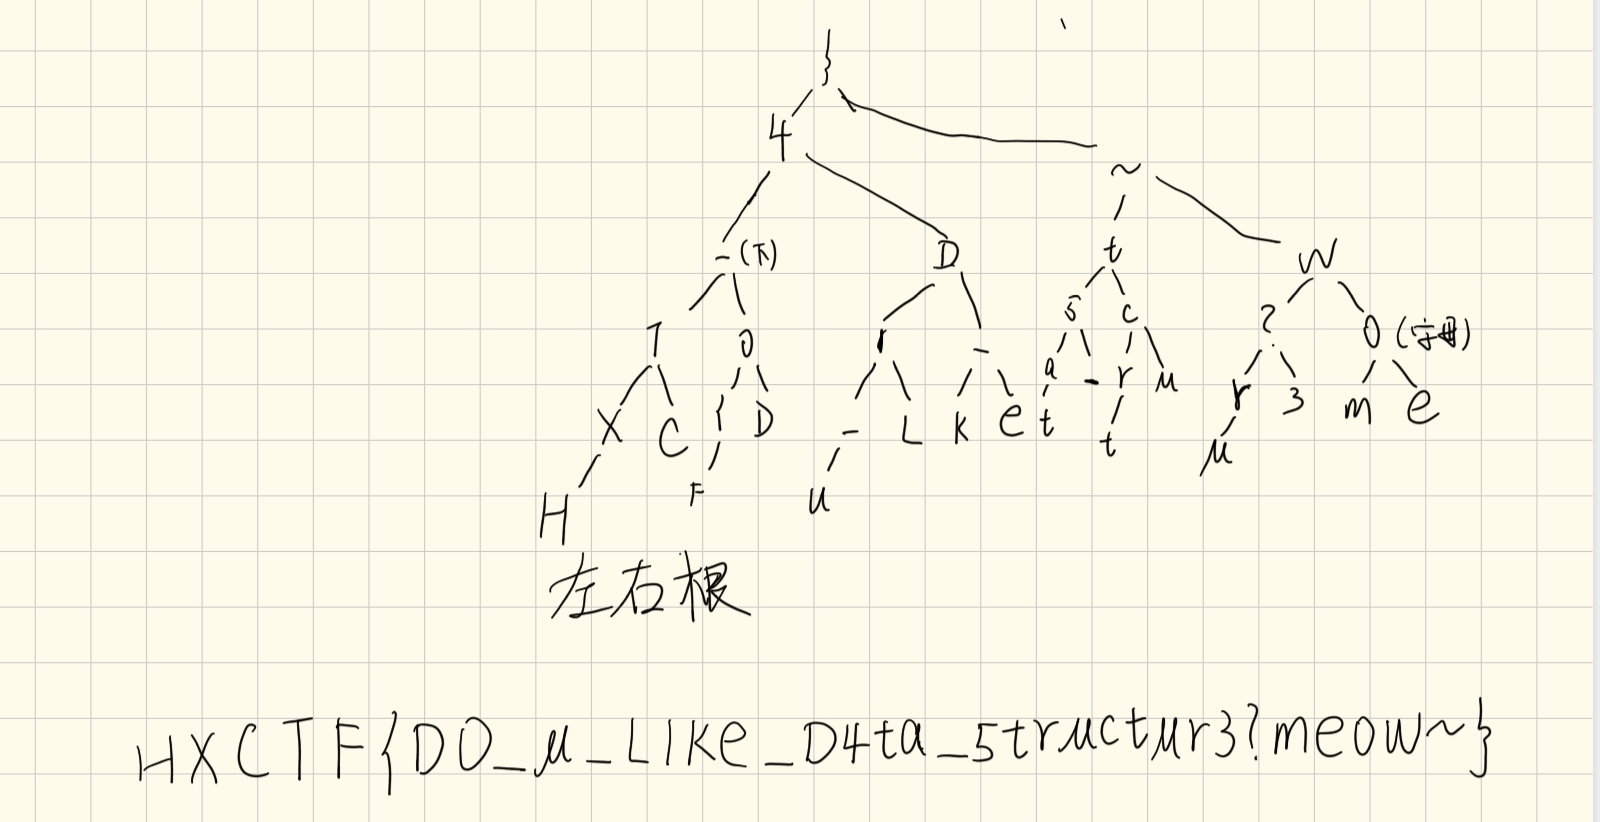 }
4 ~
-(下) D t W
T 0 1 - 5 c ? O (字母)
X C { D - L k e a - r u r 3 m e
H F u t t u
左右根
HXCTF{D0_u_L1ke_D4ta_5tructur3?meow~}